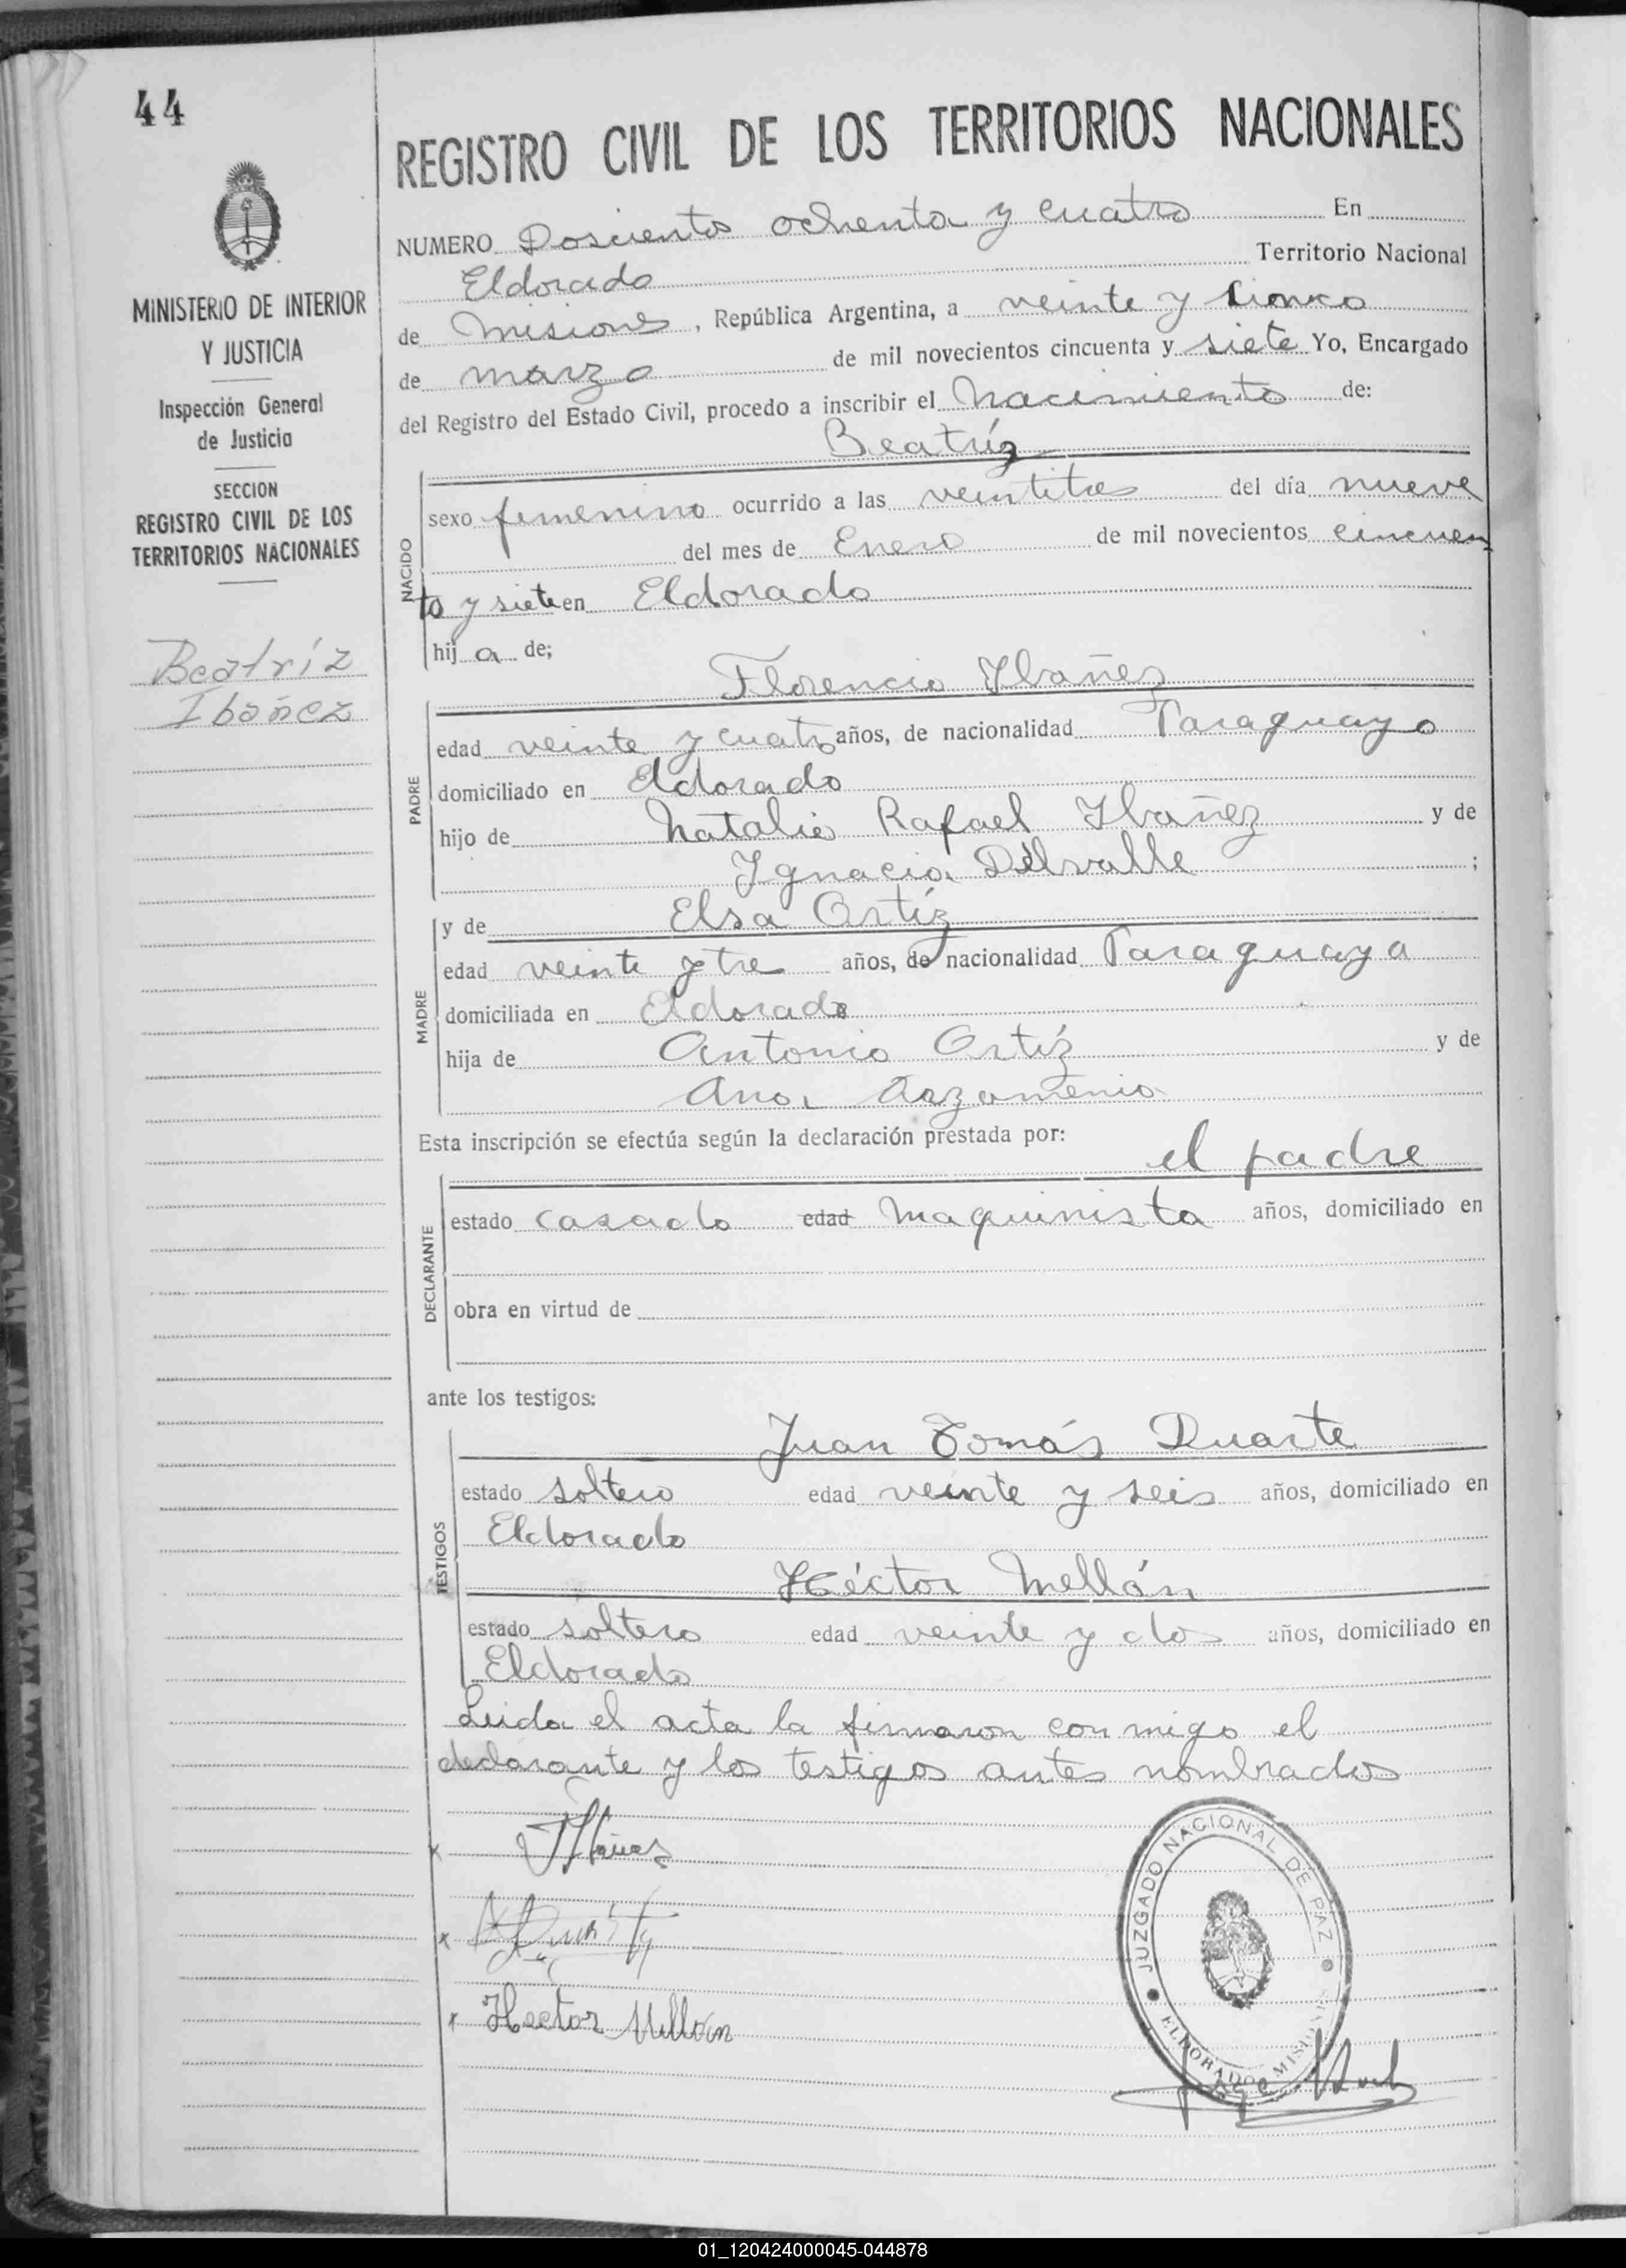 44
REGISTRO CIVIL DE LOS TERRITORIOS NACIONALES
MINISTERIO DE INTERIOR
Y JUSTICIA
Inspección General
de Justicia
SECCION
REGISTRO CIVIL DE LOS
TERRITORIOS NACIONALES
Beatríz
Ibáñez
NUMERO Doscientos ochenta y cuatro En
Eldorado Territorio Nacional
de Misiones, República Argentina, a veinte y
de marzo de mil novecientos cincuenta y siete Yo, Encargado
del Registro del Estado Civil, procedo a inscribir el Nacimiento de:
Beatríz
NACIDO
sexo femenino ocurrido a las veintitres del día nueve
del mes de Enero de mil novecientos cincuen
ta y siete en Eldorado
hij a de;
Florencio Ybañez
PADRE
edad veinte y cuatro años, de nacionalidad Paraguayo
domiciliado en Eldorado
hijo de Natalio Rafael Ybañez y de
Ygnacia Délvalle ;
y de Elsa Ortíz
MADRE
edad veinte y tre años, de nacionalidad Paraguaya
domiciliada en Eldorado
hija de Antonio Ortíz y de
Ana
Esta inscripción se efectúa según la declaración prestada por:
el padre
DECLARANTE
estado casado edad maquinista años, domiciliado en
obra en virtud de
ante los testigos:
TESTIGOS
Juan Tomás Duarte
estado soltero edad veinte y seis años, domiciliado en
Eldorado
Héctor Mellán
estado soltero edad veinte y dos años, domiciliado en
Eldorado
Leida el acta la firmaron con migo el
declarante y los testigos antes nombrados
JUZGADO NACIONAL DE PAZ
ELDORADO MISIONES
x
x
x Hector Millán
01_120424000045-044878